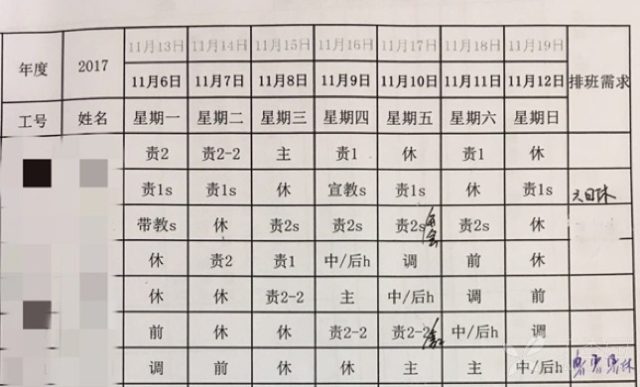 11月13日 11月14日 11月15日 11月16日 11月17日 11月18日 11月19日
年度 2017 11月6日 11月7日 11月8日 11月9日 11月10日 11月11日 11月12日 排班需求
工号 姓名 星期一 星期二 星期三 星期四 星期五 星期六 星期日
责2 责2-2 主 责1 休 责1 休
责1s 责1s 休 宣教s 责1s 休 责1s
带教s 休 责2s 责2s 责2s 责2s 休
休 责2 责1 中/后h 调 前 休
休 休 责2-2 主 中/后h 调 前
前 休 休 责2-2 责2-2 中/后h 调
调 前 休 休 主 主 中/后h